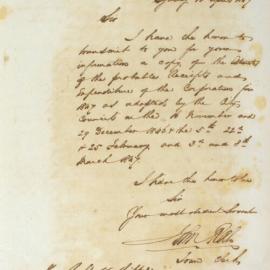 Sir
I have the honor to
transmit to you for your
information a copy of the
of the probable Receipts and
Expenditure of the Corporation for
1847 as adopted by the City
Council on the 16 November and
29 December 1846 & the 5th 22nd
& 25 February and 3rd and 8th
March 1847
I have the honor to be
Sir
Your most obedient Servant
Town Clerk